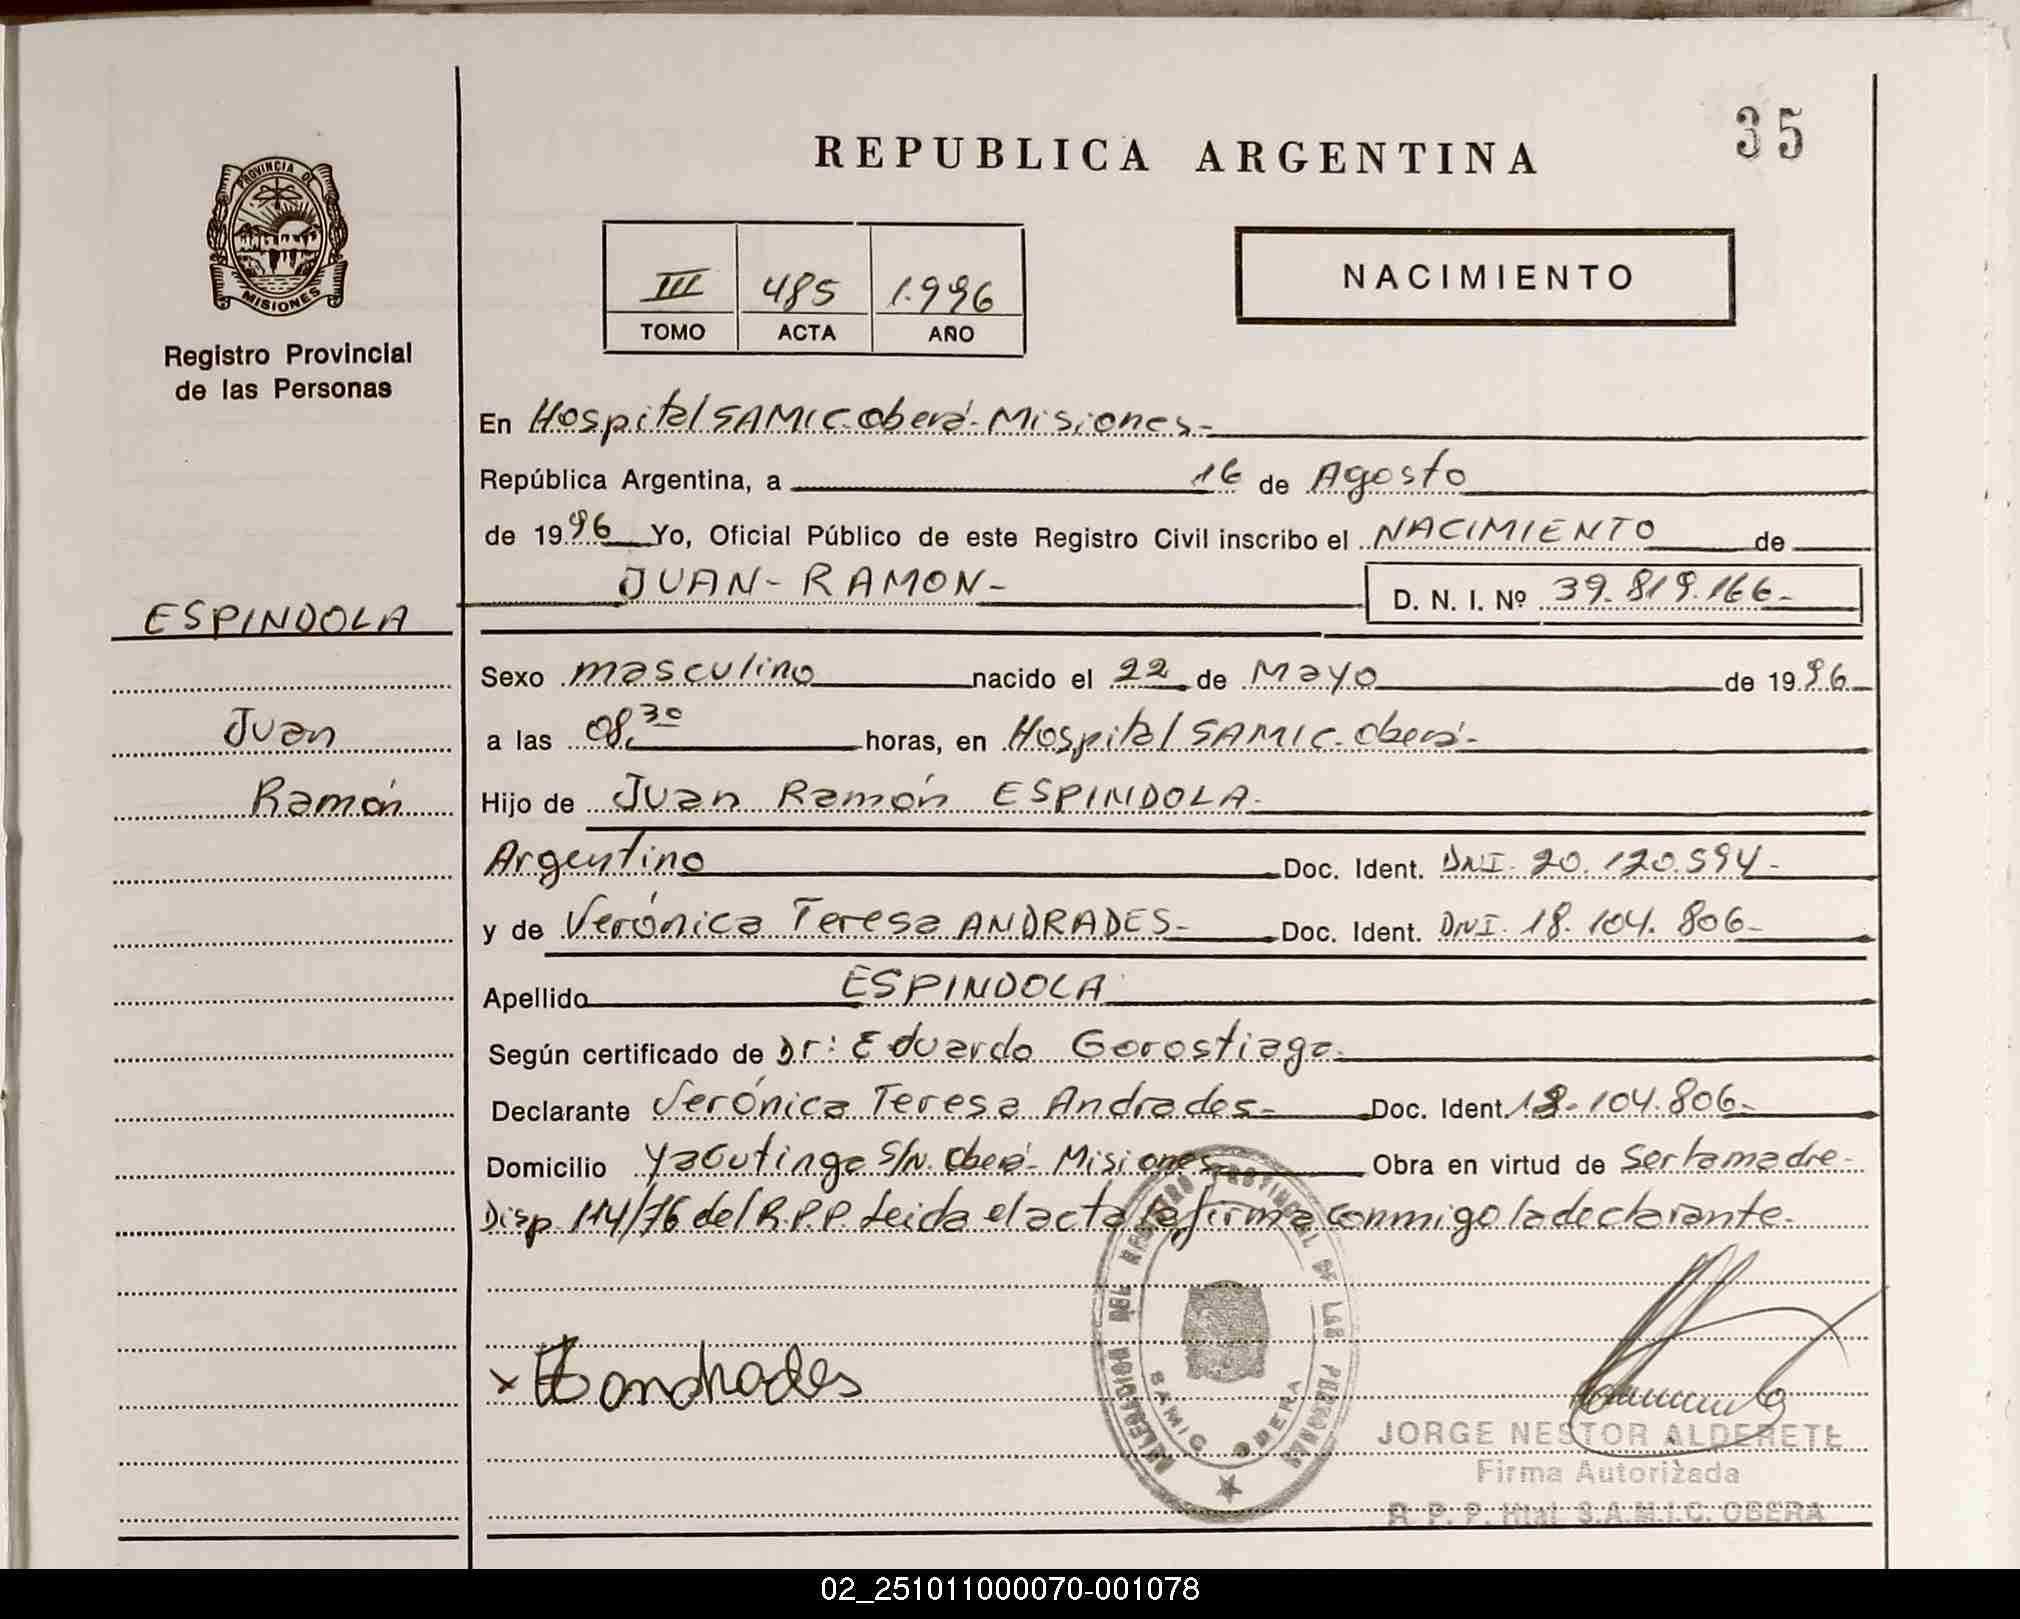 35
REPUBLICA ARGENTINA
PROVINCIA DE
MISIONES
Registro Provincial
de las Personas
III 485 1.996
TOMO ACTA AÑO
NACIMIENTO
En Hospital SAMIC. Oberá - Misiones -
República Argentina, a 16 de Agosto
de 1996 Yo, Oficial Público de este Registro Civil inscribo el NACIMIENTO de
JUAN - RAMON -
D. N. I. Nº 39.819.166 -
ESPINDOLA
Juan
Ramón
Sexo masculino nacido el 22 de Mayo de 1996
a las 08,30 horas, en Hospital SAMIC. Oberá -
Hijo de Juan Ramón ESPINDOLA -
Argentino Doc. Ident. DNI. 20.120.594 -
y de Verónica Teresa ANDRADES - Doc. Ident. DNI. 18.104.806 -
Apellido ESPINDOLA
Según certificado de Dr: Eduardo Gorostiaga -
Declarante Verónica Teresa Andrades - Doc. Ident. 18.104.806 -
Domicilio Yacutinga S/N. Oberá - Misiones Obra en virtud de ser la madre -
Disp. 114/76 del R.P.P. Leida el acta la firma conmigo la declarante -
DELEGACION DEL REGISTRO PROVINCIAL DE LAS PERSONAS
SAMIC OBERA
x Andrades
JORGE NESTOR ALDERETE
Firma Autorizada
R. P. P. Htal. S.A.M.I.C. OBERA
02_251011000070-001078